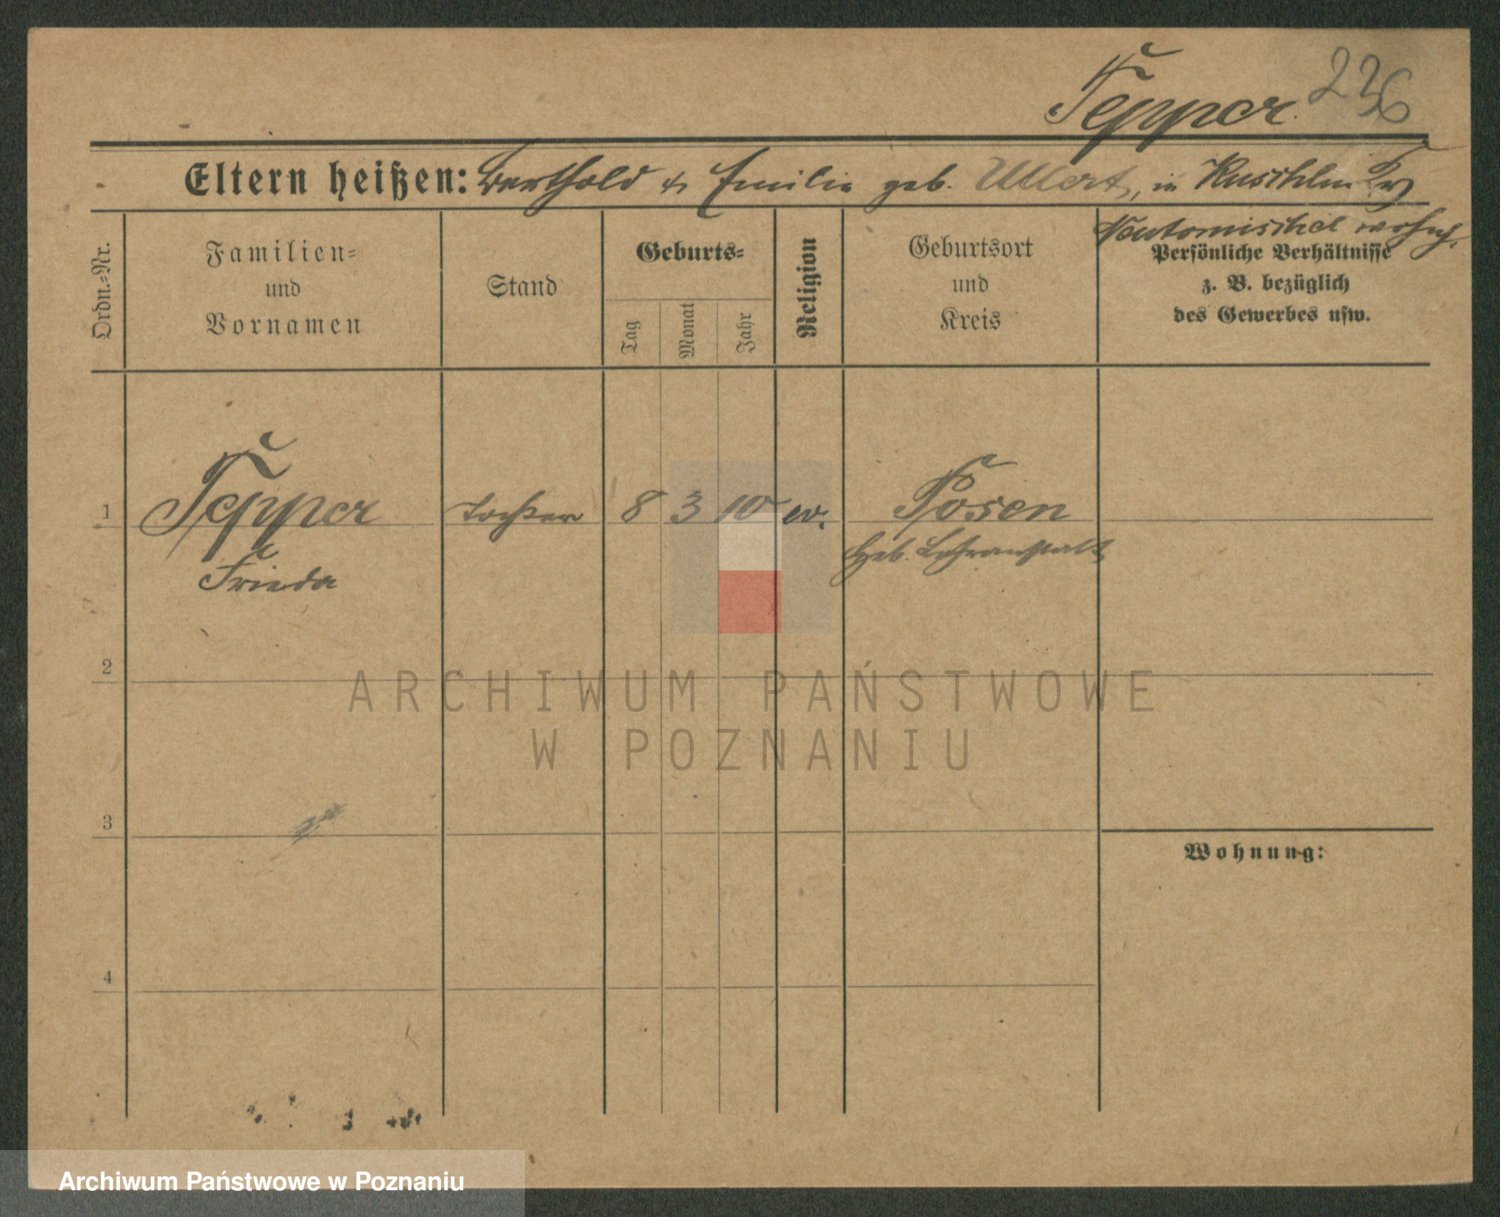 Tepper.
236
Eltern heißen: Berthold & Emilie geb. Ullert, in Kuschlin Krs
Neutomischel wohnh.
Ordn.-Nr.
Familien-
und
Vornamen
Stand
Geburts-
Tag
Monat
Jahr
Religion
Geburtsort
und
Kreis
Persönliche Verhältnisse
z. B. bezüglich
des Gewerbes usw.
1 Tepper Tochter 8 3 10 ev. Posen
Frieda
Heb. Lehranstalt
2
3
Wohnung:
4
ARCHIWUM PAŃSTWOWE
W POZNANIU
Archiwum Państwowe w Poznaniu